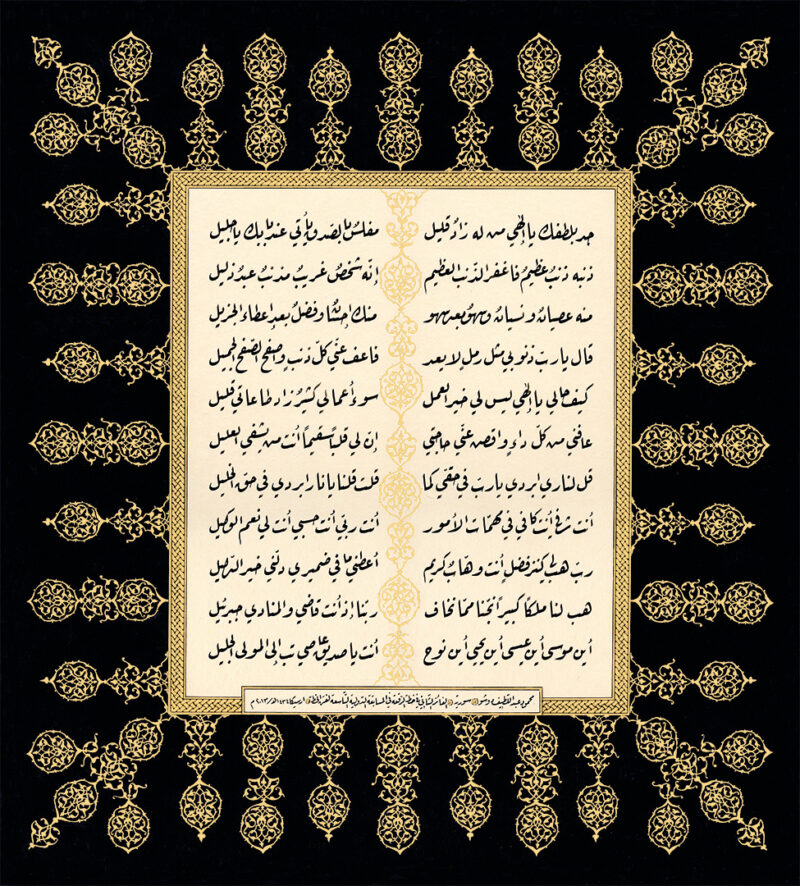 جد بلطفك يا إلهي من له زادٌ قليل مفلسٌ بالصدق يأتي عند بابك يا جليل
ذنبه ذنبٌ عظيمٌ فاغفر الذنب العظيم إنّه شخصٌ غريبٌ مذنبٌ عبدٌ ذليل
منه عصيانٌ ونسيانٌ وسهوٌ بعد سهو منك إحسانٌ وفضلٌ بعد إعطاء الجزيل
قال يا ربّ ذنوبي مثل رمل لا يعد فاعف عنّي كلّ ذنبٍ واصفح الصّفح الجميل
كيف حالي يا إلهي ليس لي خير العمل سوء أعمالي كثيرٌ زاد طاعاتي قليل
عافني من كلّ داءٍ واقض عنّي حاجتي إنّ لي قلباً سقيماً أنت من يشفي العليل
قل لناري ابردي يا ربّ في حقّي كما قلت قلنا يا نار ابردي في حق الخليل
أنت شافي أنت كافي في مهمّات الأمور أنت ربّي أنت حسبي أنت لي نعم الوكيل
ربّ هب لي كنز فضل أنت وهّابٌ كريم أعطني ما في ضميري دلّني خير الدليل
هب لنا ملكاً كبيراً نجّنا ممّا نخاف ربّنا إذ أنت قاضي والمنادي جبرئيل
أين موسى أين عيسى أين يحيى أين نوح أنت يا صديق عاصي تب إلى المولى الجليل
محمود عبد اللطيف سورية الفائز في خط الرقعة في المسابقة الدولية التاسعة لفن الخط ارسيكا م